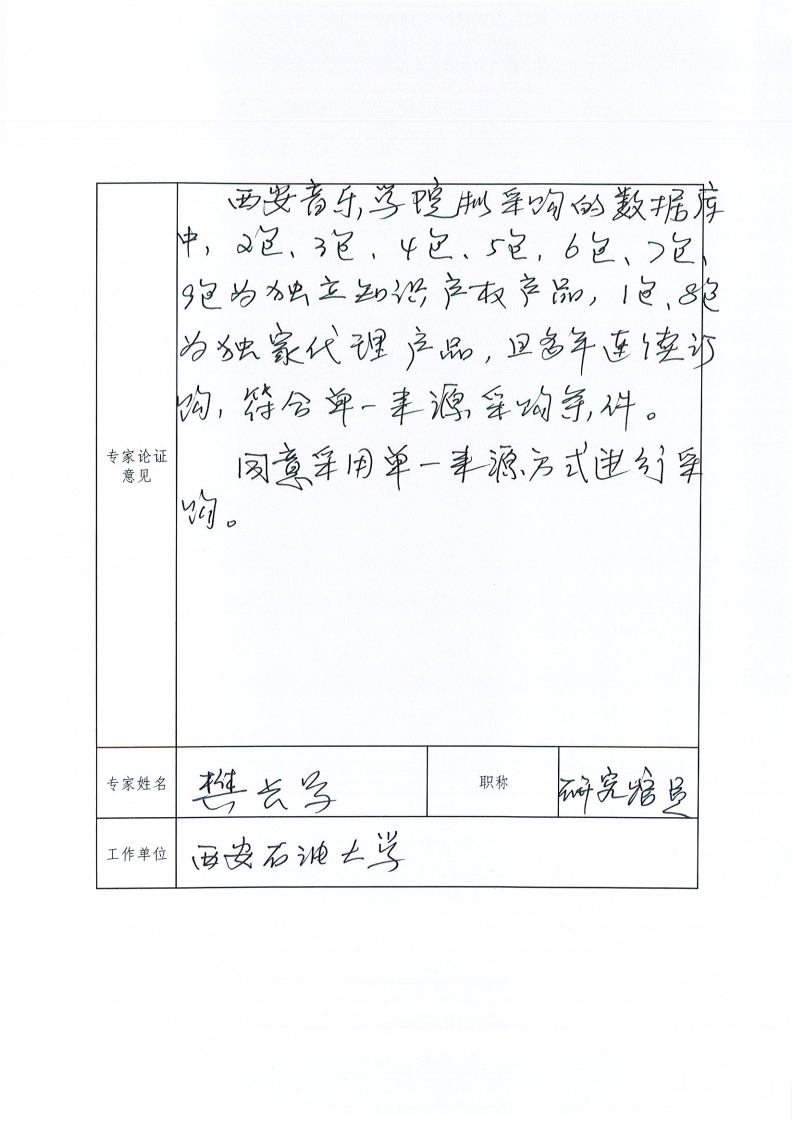 西安音乐学院拟采购的数据库
中，2包、3包、4包、5包、6包、7包、
9包为独立知识产权产品，1包、8包
为独家代理产品，且多年连续订
购，符合单一来源采购条件。
专家论证
意见
同意采用单一来源方式进行采
购。
专家姓名 樊长学 职称 研究馆员
工作单位 西安石油大学